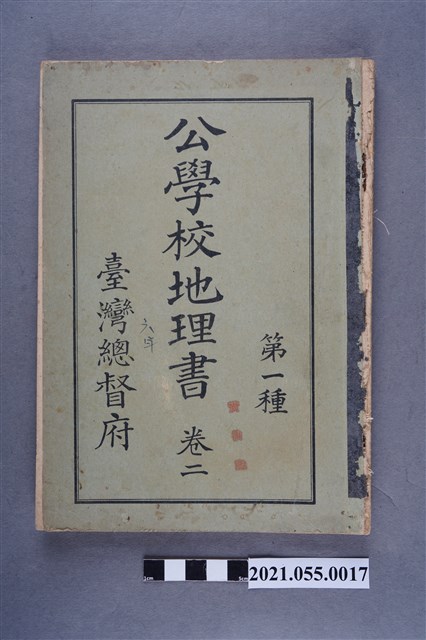 第一種
公學校地理書 卷二
六年
臺灣總督府
1cm
5cm
2021.055.0017